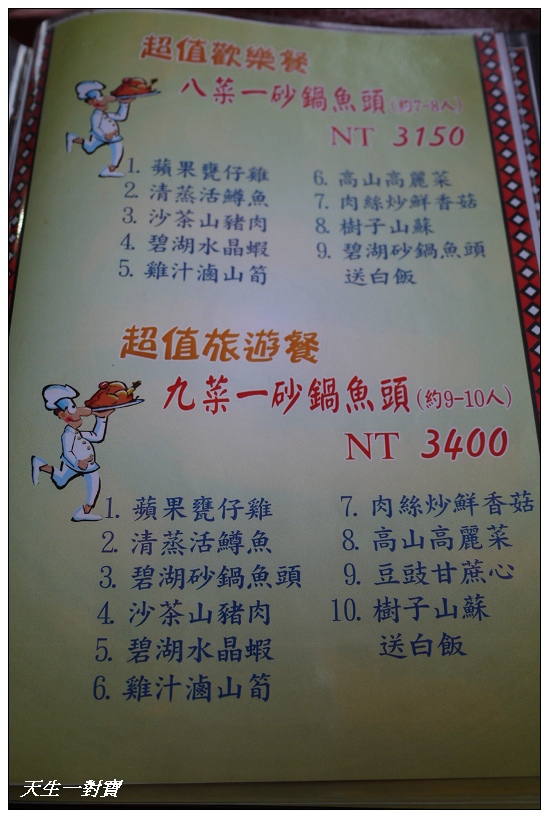 超值歡樂餐
八菜一砂鍋魚頭(約7-8人)
NT 3150
1. 蘋果甕仔雞
2. 清蒸活鱒魚
3. 沙茶山豬肉
4. 碧湖水晶蝦
5. 雞汁滷山筍
6. 高山高麗菜
7. 肉絲炒鮮香菇
8. 樹子山蘇
9. 碧湖砂鍋魚頭
送白飯
超值旅遊餐
九菜一砂鍋魚頭(約9-10人)
NT 3400
1. 蘋果甕仔雞
2. 清蒸活鱒魚
3. 碧湖砂鍋魚頭
4. 沙茶山豬肉
5. 碧湖水晶蝦
6. 雞汁滷山筍
7. 肉絲炒鮮香菇
8. 高山高麗菜
9. 豆豉甘蔗心
10. 樹子山蘇
送白飯
天生一對寶